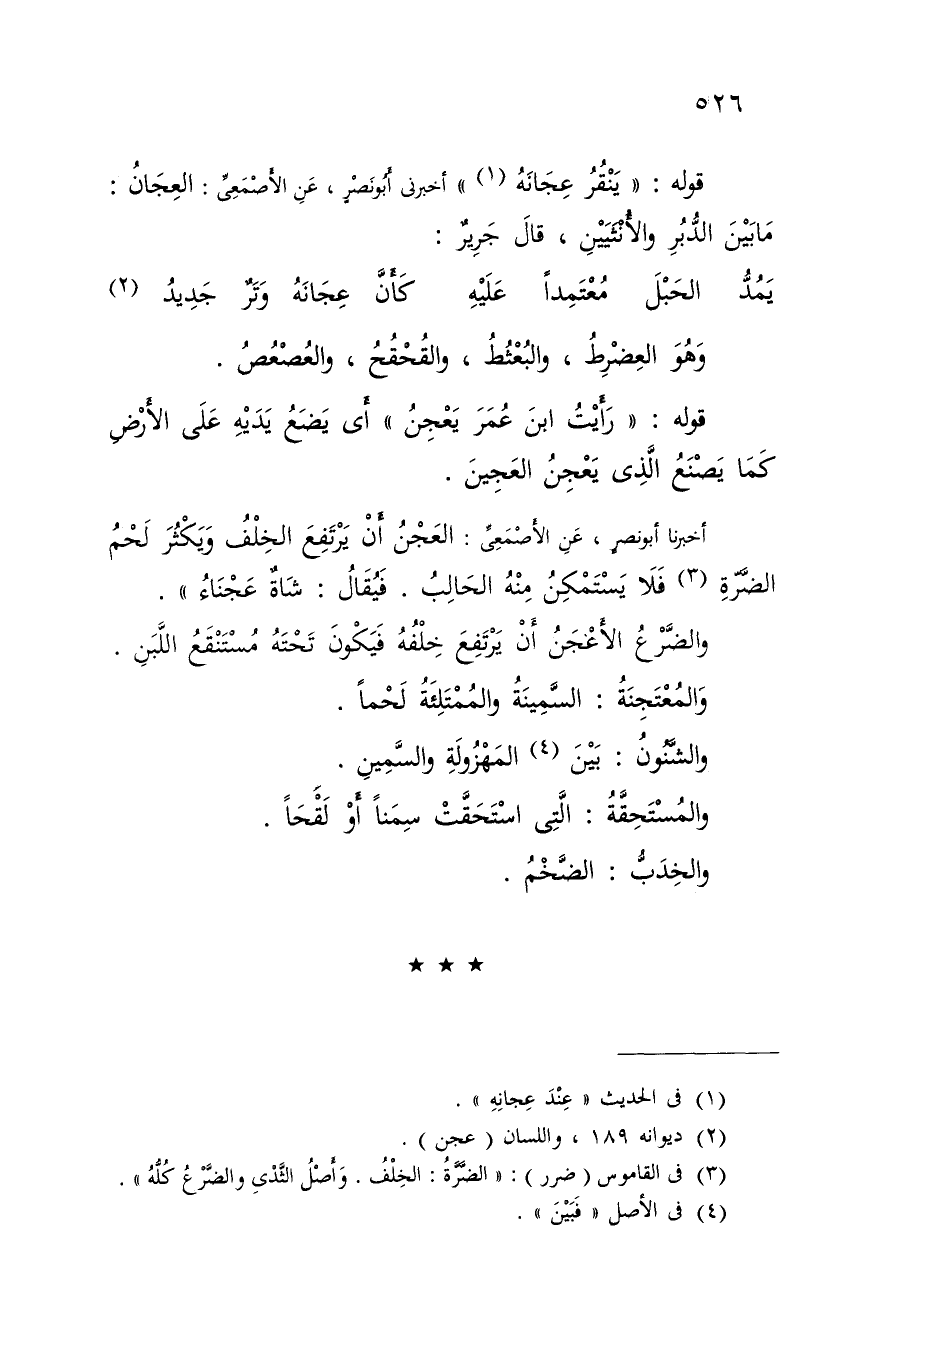 ٥٢٦
قوله : « يَنْقُرُ عِجَانَهُ (١) » أخبرنى أَبُونَصْرٍ ، عَنِ الأَصْمَعِىِّ : العِجَانُ :
مَابَيْنَ الدُّبُرِ والأُنْثَيَيْنِ ، قالَ جَرِيرٌ :
يَمُدُّ الحَبْلَ مُعْتَمِداً عَلَيْهِ كَأَنَّ عِجَانَهُ وَتَرٌ جَدِيدُ (٢)
وَهُوَ العِضْرِطُ ، والبُعْثُطُ ، والقُحْقُحُ ، والعُصْعُصُ .
قوله : « رَأَيْتُ ابنَ عُمَرَ يَعْجِنُ » أَى يَضَعُ يَدَيْهِ عَلَى الأَرْضِ
كَمَا يَصْنَعُ الَّذِى يَعْجِنُ العَجِينَ .
أخبرنا أبونصرٍ ، عَنِ الأَصْمَعِىِّ : العَجْنُ أَنْ يَرْتَفِعَ الخِلْفُ وَيَكْثُرَ لَحْمُ
الضَّرَّةِ (٣) فَلَا يَسْتَمْكِنُ مِنْهُ الحَالِبُ . فَيُقَالُ : شَاةٌ عَجْنَاءُ » .
والضَّرْعُ الأَعْجَنُ أَنْ يَرْتَفِعَ خِلْفُهُ فَيَكُونَ تَحْتَهُ مُسْتَنْقَعُ اللَّبَنِ .
وَالمُعْتَجِنَةُ : السَّمِينَةُ والمُمْتَلِئَةُ لَحْماً .
والشَّنُونُ : بَيْنَ (٤) المَهْزُولَةِ والسَّمِينِ .
والمُسْتَحِقَّةُ : الَّتِى اسْتَحَقَّتْ سِمَناً أَوْ لَقْحَاً .
والخِدَبُّ : الضَّخْمُ .
★ ★ ★
(١) فى الحديث « عِنْدَ عِجانِهِ » .
(٢) ديوانه ١٨٩ ، واللسان ( عجن ) .
(٣) فى القاموس ( ضرر ) : « الضَّرَّةُ : الخِلْفُ . وَأَصْلُ الثَّدْىِ والضَّرْعُ كُلُّهُ » .
(٤) فى الأصل « فَبَيْنَ » .